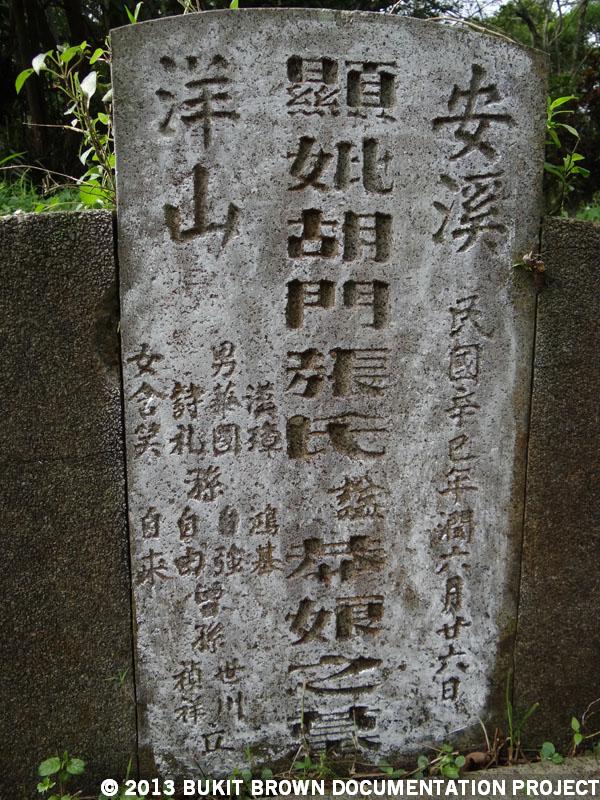 安溪
民國辛巳年潤六月廿六日
顯妣胡門張氏諡恭娘之墓
男
漢璋
華國
詩礼
女含笑
孫
鴻基
自強
自由
自來
曾孫
世川
禎祥
洋山
© 2013 BUKIT BROWN DOCUMENTATION PROJECT